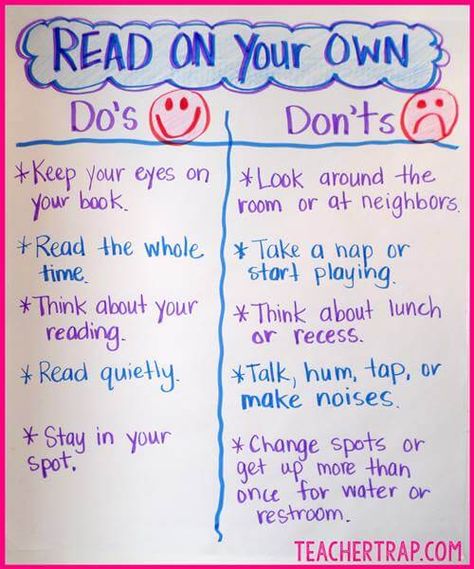 READ ON YOUR OWN
Do's
Don'ts
*Keep your eyes on
your book.
*Read the whole
time.
*Think about your
reading.
*Read quietly.
*Stay in your
spot.
*Look around the
room or at neighbors.
*Take a nap or
start playing.
*Think about lunch
or recess.
*Talk, hum, tap, or
make noises.
*Change spots or
get up more than
once for water or
restroom.
TEACHERTRAP.COM